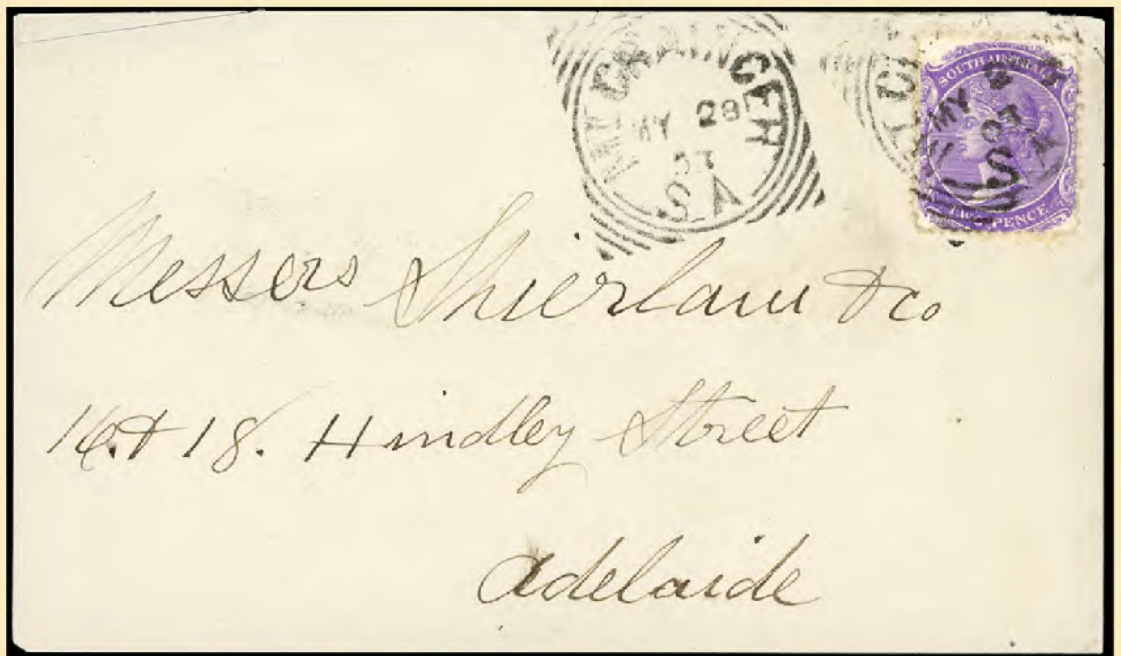 MT GRAINGER
MY 28
07
S.A
SOUTH AUSTRALIA
MY
S
TWO PENCE
Messers Shierlaw & Co
16 & 18. Hindley Street
Adelaide